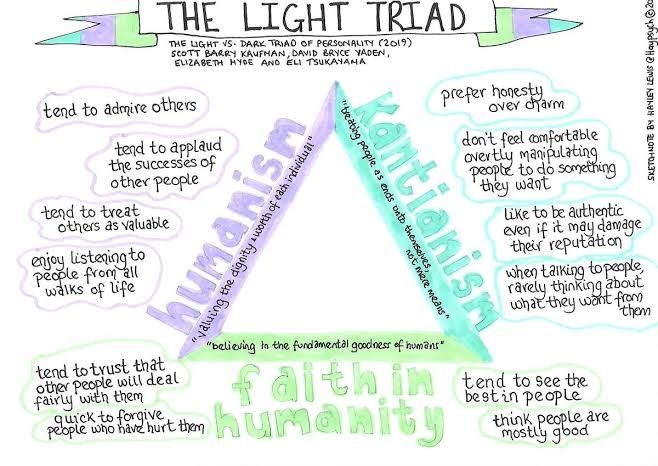 THE LIGHT TRIAD
THE LIGHT VS. DARK TRIAD OF PERSONALITY (2019)
SCOTT BARRY KAUFMAN, DAVID BRYCE YADEN,
ELIZABETH HYDE AND ELI TSUKAYAMA
tend to admire others
tend to applaud
the successes of
other people
tend to treat
others as valuable
enjoy listening to
people from all
walks of life
humanism
"valuing the dignity & worth of each individual"
kantianism
"treating people as ends unto themselves,
not mere means"
prefer honesty
over charm
don't feel comfortable
overtly manipulating
people to do something
they want
like to be authentic
even if it may damage
their reputation
when talking to people,
rarely thinking about
what they want from
them
"believing in the fundamental goodness of humans"
faith in
humanity
tend to trust that
other people will deal
fairly with them
quick to forgive
people who have hurt them
tend to see the
best in people
think people are
mostly good
SKETCHNOTE BY HAYLEY LEWIS @Haypsych ©